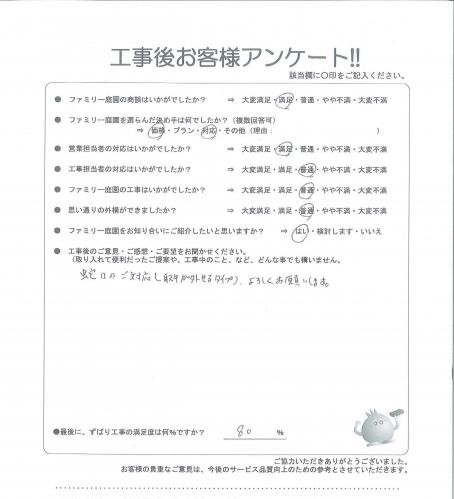 工事後お客様アンケート!!
該当欄に○印をご記入ください。
● ファミリー庭園の商談はいかがでしたか？ ⇒ 大変満足・満足・普通・やや不満・大変不満
● ファミリー庭園を選らんだ決め手は何でしたか？（複数回答可）
⇒ 価格・プラン・対応・その他（理由： ）
● 営業担当者の対応はいかがでしたか？ ⇒ 大変満足・満足・普通・やや不満・大変不満
● 工事担当者の対応はいかがでしたか？ ⇒ 大変満足・満足・普通・やや不満・大変不満
● ファミリー庭園の工事はいかがでしたか？ ⇒ 大変満足・満足・普通・やや不満・大変不満
● 思い通りの外構ができましたか？ ⇒ 大変満足・満足・普通・やや不満・大変不満
● ファミリー庭園をお知り合いにご紹介したいと思いますか？ ⇒ はい・検討します・いいえ
● 工事後のご意見・ご感想・ご要望をお聞かせください。
（取り入れて便利だったご提案や、工事中のこと、など、どんな事でも構いません。
蛇口のご対応（取手が外せるタイプ）、よろしくお願いします。
●最後に、ずばり工事の満足度は何%ですか？ 80 %
ご協力いただきありがとうございました。
お客様の貴重なご意見は、今後のサービス品質向上のための参考とさせていただきます。